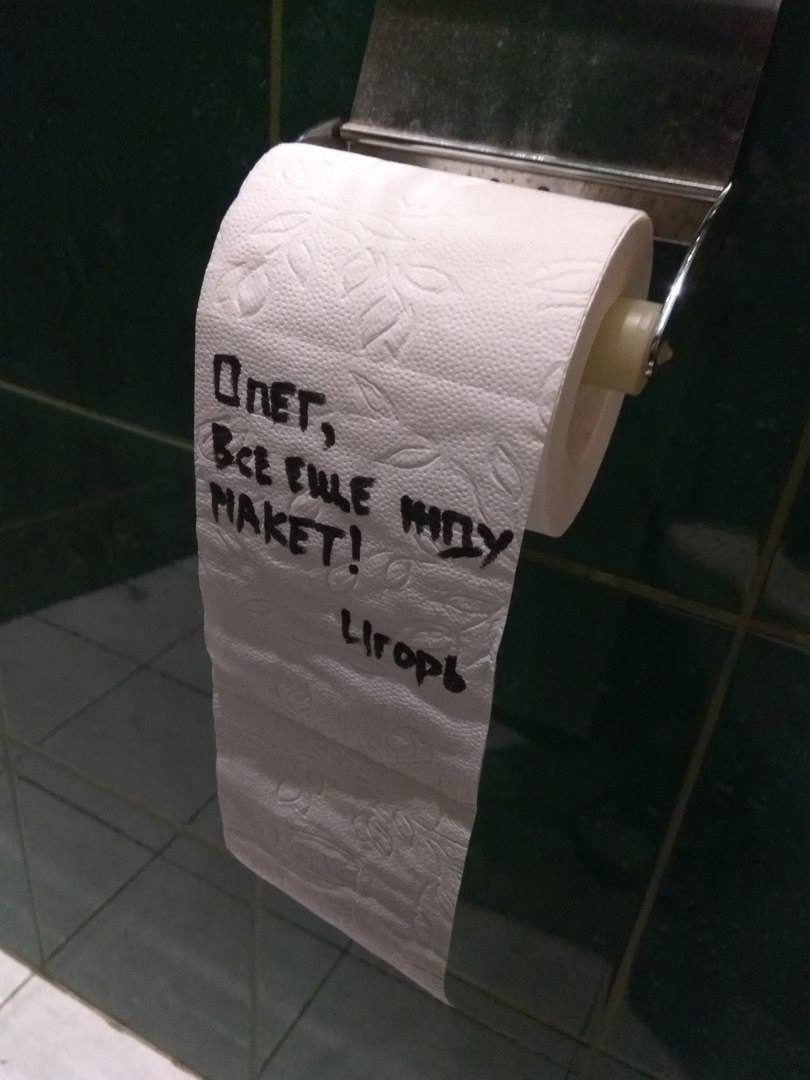 Олег,
Все еще жду
макет!
Игорь